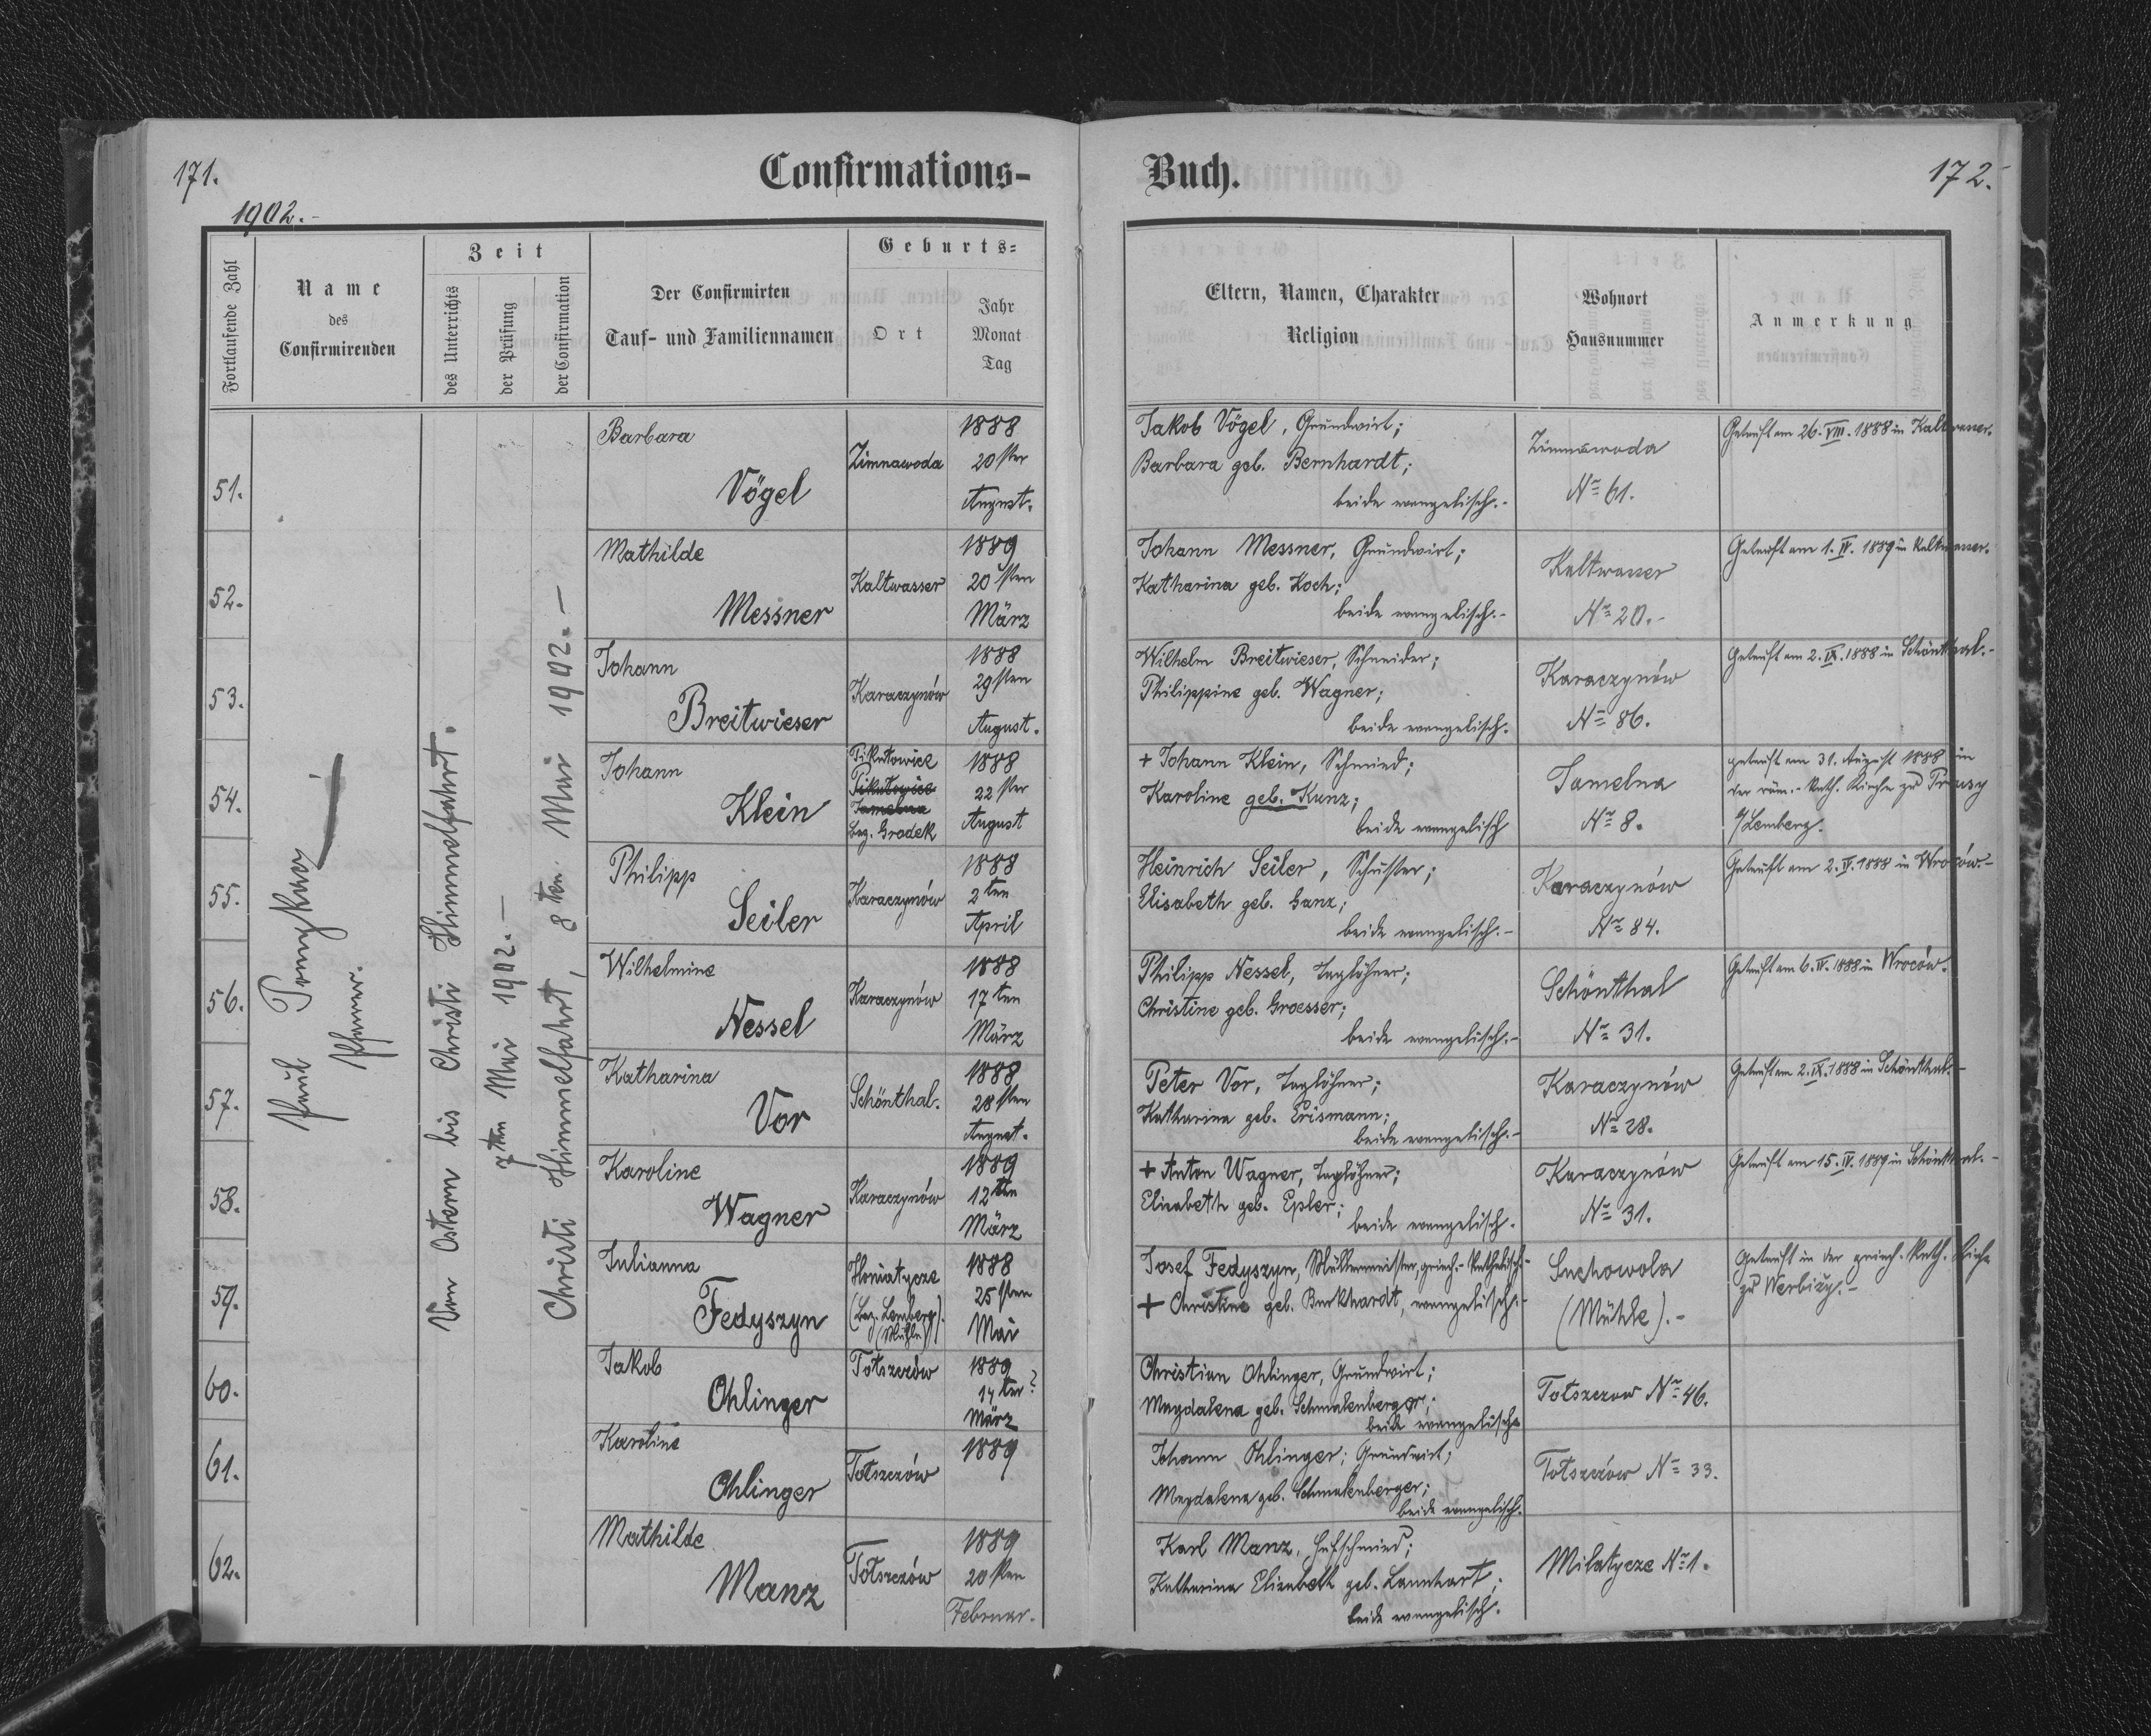 171.
Confirmations-
Buch.
172.
1902.-
Fortlaufende Zahl
Name
des
Confirmirenden
Zeit
des Unterrichts
der Prüfung
der Confirmation
Der Confirmirten
Tauf- und Familiennamen
Geburts-
Ort
Jahr
Monat
Tag
Eltern, Namen, Charakter
Religion
Wohnort
Hausnummer
Anmerkung
Paul
Pfarrer.
Von Ostern bis Christi Himmelfahrt.
7ten Mai 1902.-
Christi Himmelfahrt, 8ten Mai 1902.-
51.
Barbara
Vögel
Zimnawoda
1888
20ster
August.
Jakob Vögel, Grundwirt;
Barbara geb. Bernhardt;
beide evangelisch.-
Zimnawoda
No 61.
Getauft am 26. VIII. 1888 in Kaltwasser.
52.
Mathilde
Messner
Kaltwasser
1889
20sten
März
Johann Messner, Grundwirt;
Katharina geb. Koch;
beide evangelisch.-
Kaltwasser
No 20.-
Getauft am 1. IV. 1889 in Kaltwasser.
53.
Johann
Breitwieser
Karaczynów
1888
29sten
August.
Wilhelm Breitwieser, Schneider;
Philippine geb. Wagner;
beide evangelisch.
Karaczynów
No 86.
Getauft am 2. IX. 1888 in Schönthal.-
54.
Johann
Klein
Pikulowice
Pikulowice
Jamelna
Bez. Grodek
1888
22ster
August
+ Johann Klein, Schmied;
Karoline geb. Kunz;
beide evangelisch
Jamelna
No 8.
getauft am 31. August 1888 in
der röm.-kath. Kirche zu Prusy
b/Lemberg.
55.
Philipp
Seiler
Karaczynów
1888
2ten
April
Heinrich Seiler, Schuster;
Elisabeth geb. Ganz;
beide evangelisch.-
Karaczynów
No 84.
Getauft am 2. IV. 1888 in Wroców.-
56.
Wilhelmine
Nessel
Karaczynów
1888
17ten
März
Philipp Nessel, Taglöhner;
Christine geb. Groesser;
beide evangelisch.-
Schönthal
No 31.
Getauft am 6. IV. 1888 in Wroców.
57.
Katharina
Vor
Schönthal.
1888
28sten
August.
Peter Vor, Taglöhner;
Katharina geb. Erismann;
beide evangelisch.-
Karaczynów
No 28.
Getauft am 2. IX. 1888 in Schönthal.-
58.
Karoline
Wagner
Karaczynów
1889
12ten
März
+ Anton Wagner, Taglöhner;
Elisabeth geb. Epler;
beide evangelisch.
Karaczynów
No 31.
Getauft am 15. IV. 1889 in Schönthal.-
59.
Julianna
Fedyszyn
Honiatycze
(Bez. Lemberg).
(Mühle)
1888
25sten
Mai
Josef Fedyszyn, Müllermeister, griech.-katholisch.-
+ Christine geb. Burkhardt, evangelisch.-
Suchowola
(Mühle).-
Getauft in der griech.-kath. Kirche
zu Werbiży.-
60.
Jakob
Ohlinger
Tołszczów
1889
14ter?
März
Christian Ohlinger, Grundwirt;
Magdalena geb. Schmalenberger;
beide evangelisch.
Tołszczow No 46.
61.
Karoline
Ohlinger
Tołszczów
1889
Johann Ohlinger; Grundwirt;
Magdalena geb. Schmalenberger;
beide evangelisch.
Tołszczów No 33.
62.
Mathilde
Manz
Tołszczów
1889
20sten
Februar.
Karl Manz, Hufschmied;
Katharina Elisabeth geb. Lannhart;
beide evangelisch.
Milatycze No 1.